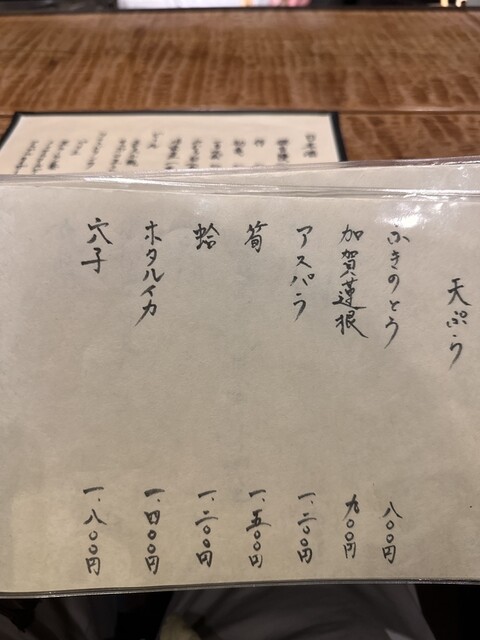 天ぷら
ふきのとう 八〇〇円
加賀蓮根 九〇〇円
アスパラ 一、二〇〇円
筍 一、五〇〇円
蛤 一、二〇〇円
ホタルイカ 一、四〇〇円
穴子 一、八〇〇円